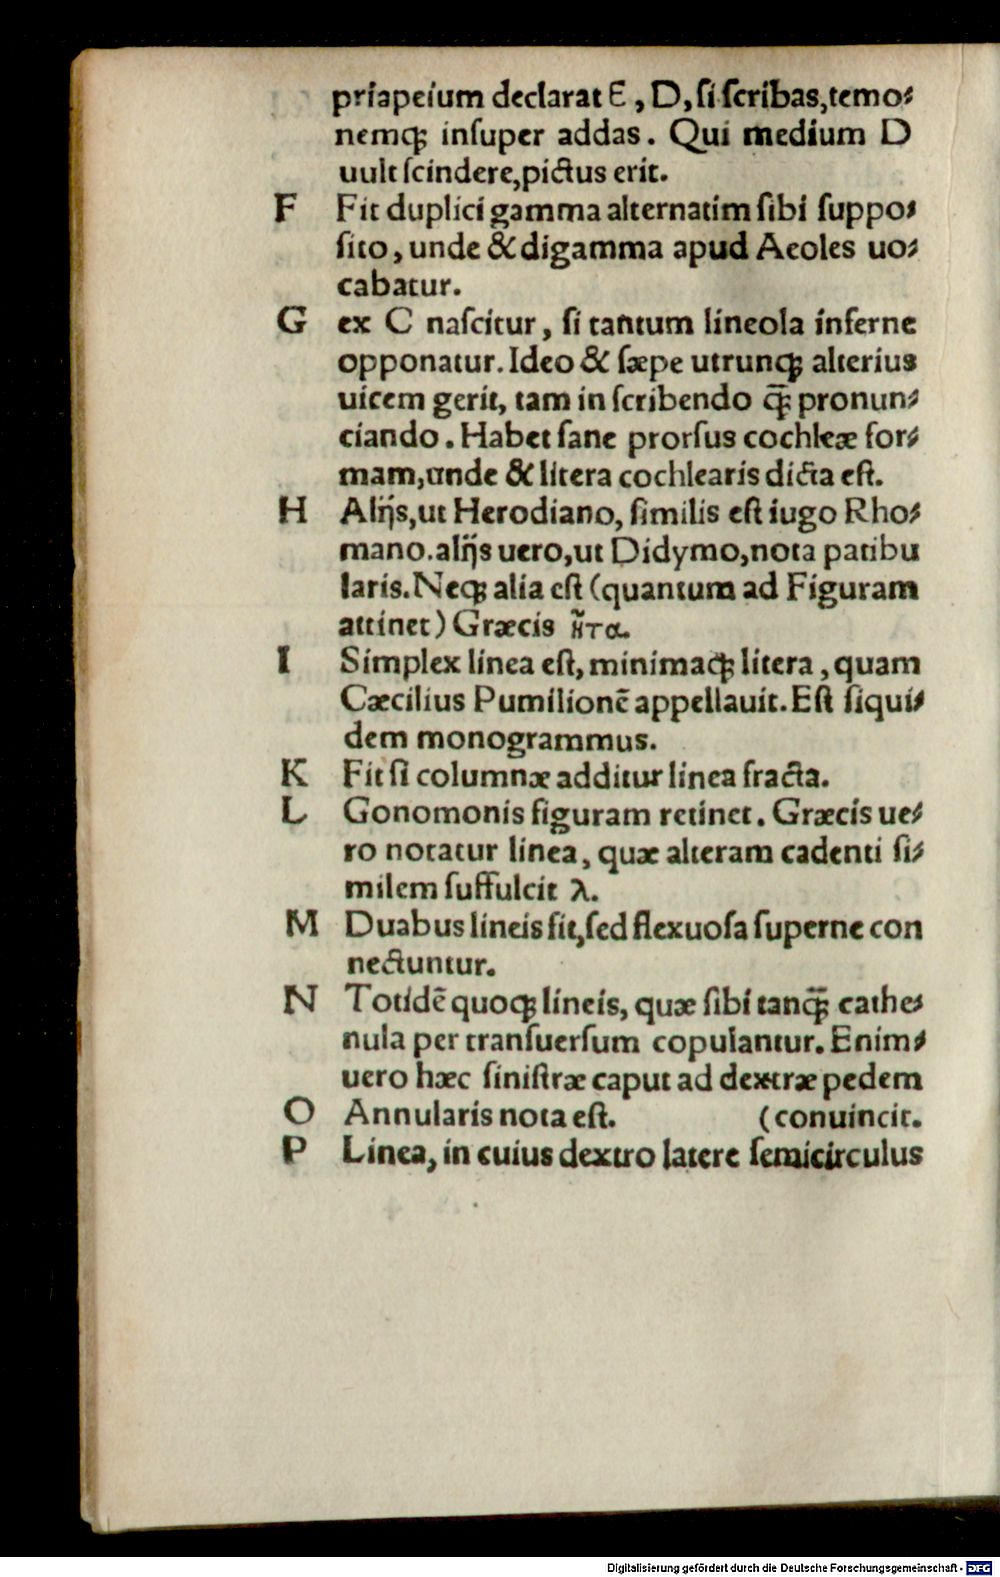 priapeium declarat E, D, ſi ſcribas, temo⸗
nemqꝫ inſuper addas. Qui medium D
uult ſcindere, pictus erit.
F Fit duplici gamma alternatim ſibi ſuppo⸗
ſito, unde & digamma apud Aeoles uo⸗
cabatur.
G ex C naſcitur, ſi tantum lineola inferne
opponatur. Ideo & ſæpe utrunqꝫ alterius
uicem gerit, tam in ſcribendo q̃ꝫ pronun⸗
ciando. Habet ſane prorſus cochleæ for⸗
mam, unde & litera cochlearis dicta eſt.
H Alijs, ut Herodiano, ſimilis eſt iugo Rho⸗
mano. alijs uero, ut Didymo, nota patibu
laris. Neqꝫ alia eſt (quantum ad Figuram
attinet) Græcis ἦτα.
I Simplex linea eſt, minimaqꝫ litera, quam
Cæcilius Pumilionē appellauit. Eſt ſiqui⸗
dem monogrammus.
K Fit ſi columnæ additur linea fracta.
L Gonomonis figuram retinet. Græcis ue⸗
ro notatur linea, quæ alteram cadenti ſi⸗
milem ſuffulcit λ.
M Duabus lineis fit, ſed flexuoſa ſuperne con
nectuntur.
N Totidē quoqꝫ lineis, quæ ſibi tanq̃ꝫ cathe⸗
nula per tranſuerſum copulantur. Enim⸗
uero hæc ſiniſtræ caput ad dextræ pedem
O Annularis nota eſt. (conuincit.
P Linea, in cuius dextro latere ſemicirculus
Digitalisierung gefördert durch die Deutsche Forschungsgemeinschaft - DFG